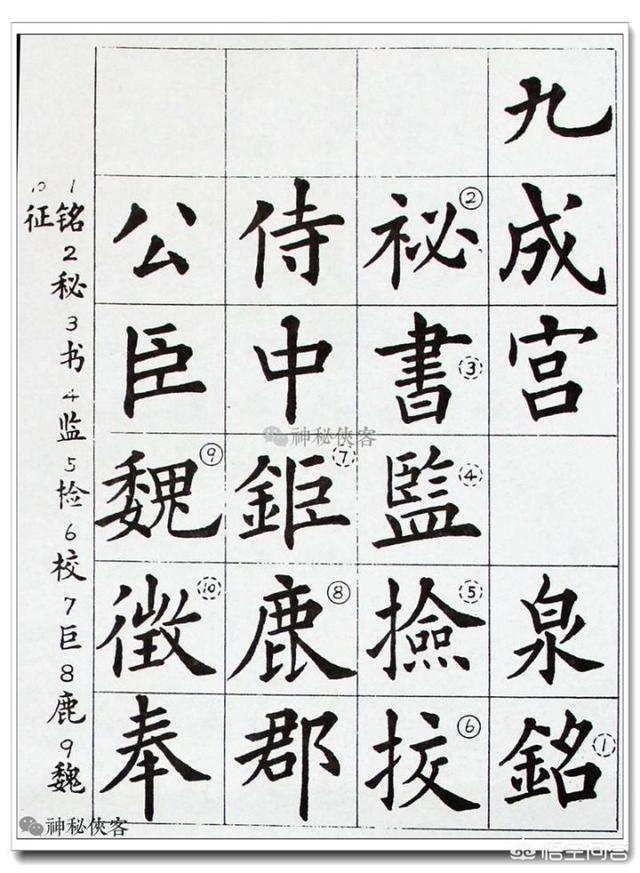 九成宫泉銘①
祕②書③監④撿⑤挍⑥
侍中鉅⑦鹿⑧郡
公臣魏⑨徵⑩奉
1铭2秘3书4监5检6校7巨8鹿9魏
10征
神秘俠客
神秘俠客
悟空问答